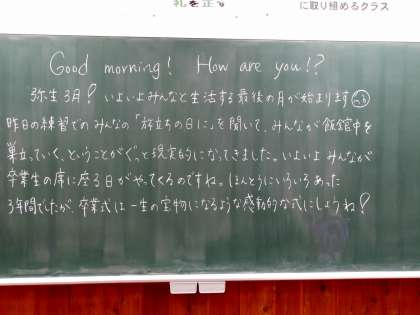 礼を正す
に取り組めるクラス
Good morning! How are you!?
弥生3月！いよいよみんなと生活する最後の月が始まります
昨日の練習でのみんなの「旅立ちの日に」を聞いて、みんなが飯館中を
巣立っていく、ということがぐっと現実的になってきました。いよいよ みんなが
卒業生の席に座る日がやってくるのですね。ほんとうにいろいろあった
3年間でしたが、卒業式は一生の宝物になるような感動的な式にしようね！